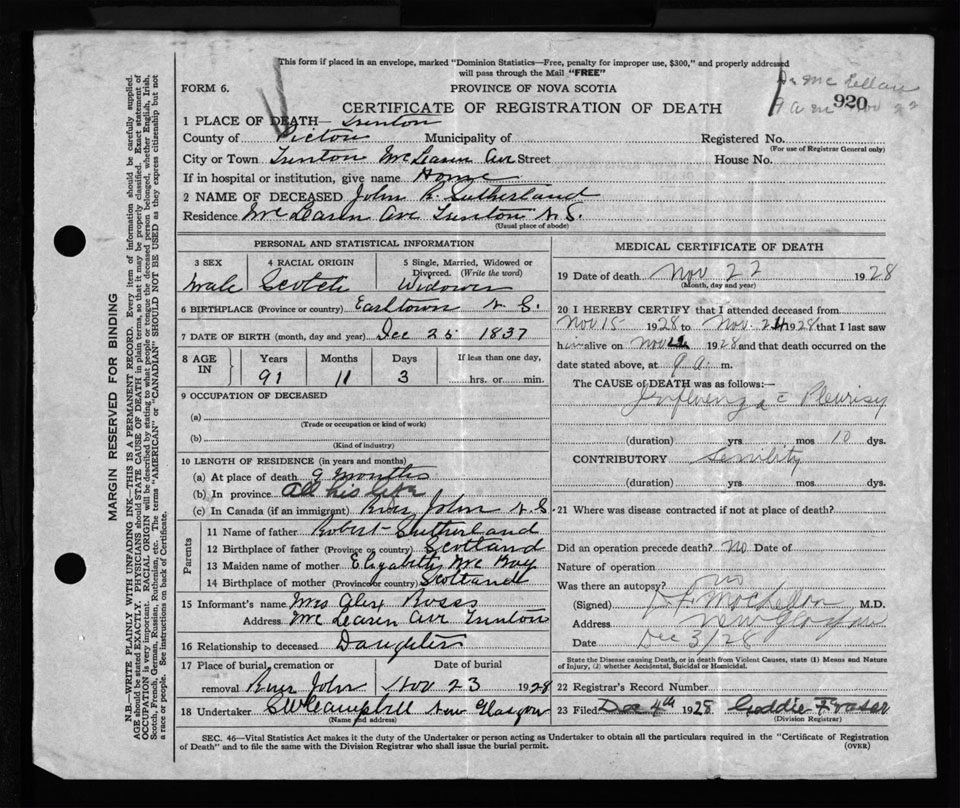 This form if placed in an envelope, marked "Dominion Statistics—Free, penalty for improper use, $300," and properly addressed
will pass through the Mail "FREE"
FORM 6. PROVINCE OF NOVA SCOTIA
920
CERTIFICATE OF REGISTRATION OF DEATH
1 PLACE OF DEATH— Trenton
County of Pictou Municipality of Registered No.
(For use of Registrar General only)
City or Town Trenton Ave Street House No.
If in hospital or institution, give name Home
2 NAME OF DECEASED John Sutherland
Residence Ave Trenton N.S.
(Usual place of abode)
PERSONAL AND STATISTICAL INFORMATION
3 SEX 4 RACIAL ORIGIN 5 Single, Married, Widowed or Divorced. (Write the word)
Male Scotch Widower
6 BIRTHPLACE (Province or country) Earltown N.S.
7 DATE OF BIRTH (month, day and year) Dec 25 1837
8 AGE IN Years Months Days If less than one day,
91 11 3 hrs. or min.
9 OCCUPATION OF DECEASED
(a)
(Trade or occupation or kind of work)
(b)
(Kind of industry)
10 LENGTH OF RESIDENCE (in years and months)
(a) At place of death 9 months
(b) In province All his life
(c) In Canada (if an immigrant) River John N.S.
Parents
11 Name of father Robert Sutherland
12 Birthplace of father (Province or country) Scotland
13 Maiden name of mother Elizabeth
14 Birthplace of mother (Province or country) Scotland
15 Informant's name Mrs Alex Ross
Address Ave Trenton
16 Relationship to deceased Daughter
17 Place of burial, cremation or removal River John Date of burial Nov 23 1928
18 Undertaker Campbell New Glasgow
(Name and address)
MEDICAL CERTIFICATE OF DEATH
19 Date of death Nov 22 1928
(Month, day and year)
20 I HEREBY CERTIFY that I attended deceased from
Nov 15 1928 to Nov. 1928 that I last saw
him alive on Nov 1928 and that death occurred on the
date stated above, at 9 a. m.
The CAUSE of DEATH was as follows:—
Influenza c Pleurisy
(duration) yrs mos 10 dys.
CONTRIBUTORY Senility
(duration) yrs mos dys.
21 Where was disease contracted if not at place of death?
Did an operation precede death? no Date of
Nature of operation
Was there an autopsy? no
(Signed) M.D.
Address New Glasgow
Date Dec 3/28
State the Disease causing Death, or in death from Violent Causes, state (1) Means and Nature
of Injury, (2) whether Accidental, Suicidal or Homicidal.
22 Registrar's Record Number
23 Filed Dec 4th 1928 Goddie Fraser
(Division Registrar)
SEC. 46—Vital Statistics Act makes it the duty of the Undertaker or person acting as Undertaker to obtain all the particulars required in the "Certificate of Registration
of Death" and to file the same with the Division Registrar who shall issue the burial permit. (OVER)
MARGIN RESERVED FOR BINDING
N.B.—WRITE PLAINLY WITH UNFADING INK—THIS IS A PERMANENT RECORD. Every item of information should be carefully supplied.
AGE should be stated EXACTLY. PHYSICIANS should STATE CAUSE OF DEATH in plain terms, so that it may be properly classified. Exact statement of
OCCUPATION is very important. RACIAL ORIGIN will be described by stating to what people or tongue the deceased person belonged, whether English, Irish,
Scotch, French, German, Russian, Ruthenian, etc. The terms "AMERICAN" or "CANADIAN" SHOULD NOT BE USED as they express citizenship but not
a race or people. See instructions on back of Certificate.